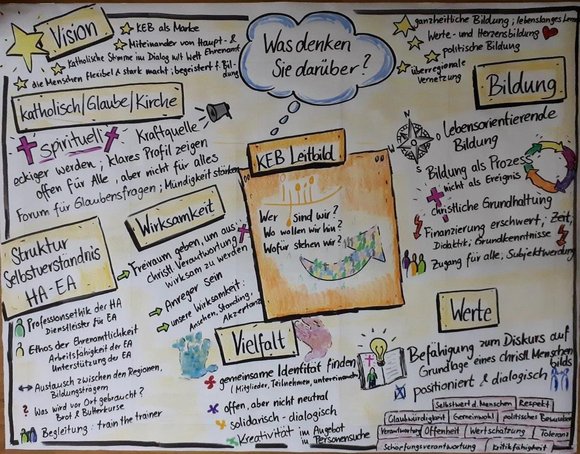 Vision
KEB als Marke
Miteinander von Haupt- &
Ehrenamt
Katholische Stimme im Dialog mit Welt
die Menschen flexibel & stark macht; begeistert f. Bil-
dung
Was denken
Sie darüber?
ganzheitliche Bildung; lebenslanges Lernen
Werte- und Herzensbildung
politische Bildung
überregionale
Vernetzung
Bildung
Katholisch/Glaube/Kirche
Spirituell
Kraftquelle
eckiger werden; klares Profil zeigen
offen für Alle, aber nicht für alles
Forum für Glaubensfragen; Mündigkeit stärken
KEB Leitbild
Wer sind wir?
Wo wollen wir hin?
Wofür stehen wir?
lebensorientierende
Bildung
Bildung als Prozess
nicht als Ereignis
christliche Grundhaltung
Finanzierung erschwert, Zeit,
Didaktik; Grundkenntnisse
Zugang für alle, Subjektwerdung
Wirksamkeit
Freiraum geben, um aus
christl. Verantwortung
wirksam zu werden
Anreger sein
unsere Wirksamkeit:
Ansehen, Standing,
Akzeptanz
Struktur
Selbstverständnis
HA-EA
Professionsethik der HA
Dienstleister für EA
Ethos der Ehrenamtlichkeit
Arbeitsfähigkeit der EA
Unterstützung der EA
Austausch zwischen den Regionen,
Bildungsträgern
? Was wird vor Ort gebraucht?
Brot & Butterkurse
Begleitung: train the trainer
Vielfalt
gemeinsame Identität finden
(Mitglieder, Teilnehmer, untereinander)
offen, aber nicht neutral
solidarisch - dialogisch
Kreativität im Angebot
in Personensuche
Werte
Befähigung zum Diskurs auf
Grundlage eines christl. Menschen
bilds
positioniert & dialogisch
Selbstwert d. Menschen Respekt
Glaubwürdigkeit Gemeinwohl politisches Bewusstsein
Verantwortung Offenheit Wertschätzung Toleranz
Schöpfungsverantwortung Kritikfähigkeit